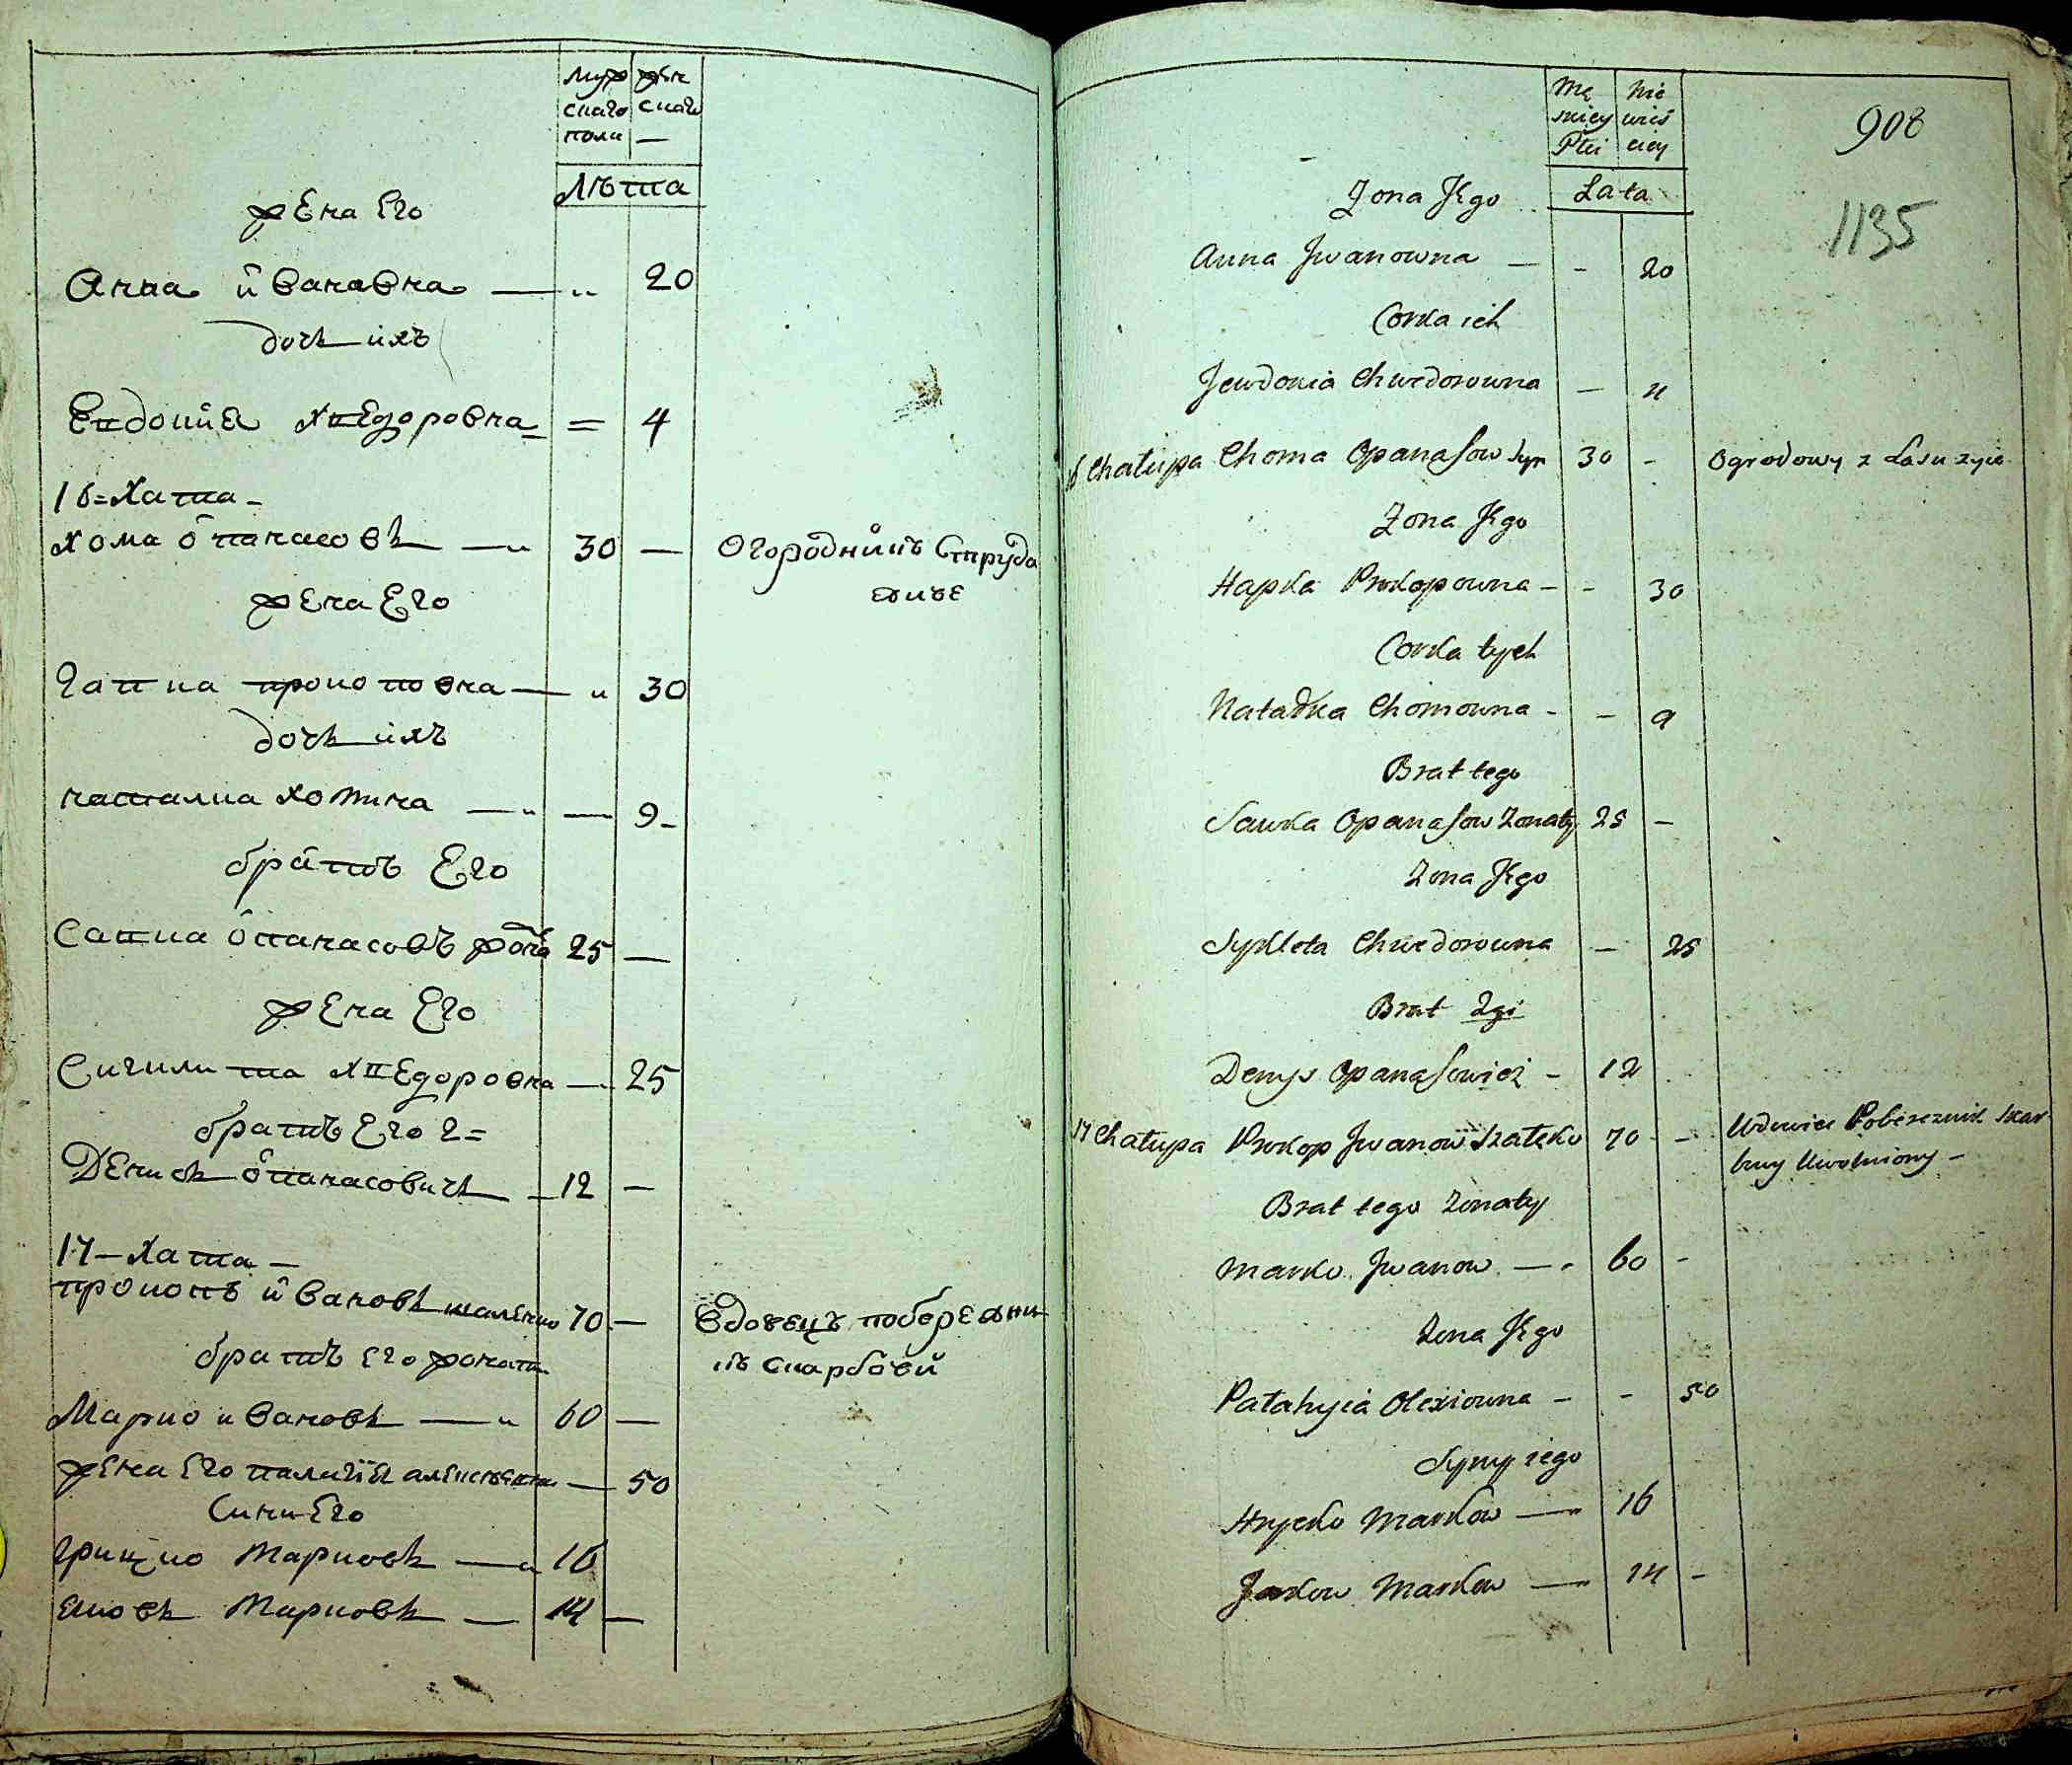 Муж жен
скаго скаго
пола —
Лѣта
жена Его
Анна иванавна — 20
дочь ихъ
Евдокиа хведоровна = 4
16 = Хата -
Хома опанасовъ — 30 — Огородникъ Струда
живе
жена Его
гапка прокоповна — 30
дочь ихъ
наталка хомина — — 9 -
братъ Его
Савка опанасовъ жона 25 —
жена Его
Сиглита хведоровна — 25
братъ Его 2 =
Денись опанасовичь — 12 —
17 — Хата —
прокопъ ивановь шаленко 70 — Вдовецъ побережни
братъ Его жонати къ скарбови
Марко ивановь — 60 —
жена Его палагиа алексѣевна — 50
Сини Его
грицко Марковь — 16
Яковь Марковь — 14 —
Mę Nie
skiey wieś
Płci ciey
908
Lata
1135
Zona Jego
Anna Jwanowna — - 20
Corka ich
Jewdokia Chwedorowna — 4
16 Chałupa Choma Opanasow Syn 30 - Ogrodowy z Lasu zyie
Zona Jego
Hapka Prokopowna - - 30
Corka tych
Natałka Chomowna - - 9
Brat tego
Sawka Opanasow Zonaty 25 —
Zona Jego
Sykleta Chwedorowna — 25
Brat 2gi
Denys Opanasowicz - 12
17 Chałupa Prokop Jwanow Szałeko 70 - Wdowiec Pobereznik Skar
bowy Uwolniony -
Brat tego Zonaty
Marko Jwanow — 60 -
Zona Jego
Pałahyia Olexiowna - - 50
Syny iego
Hrycko Markow — 16
Jakow Markow — 14 -